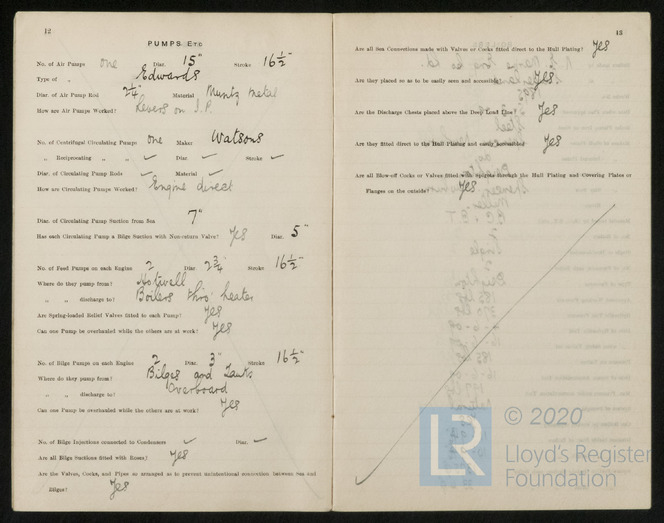 12
PUMPS, ETC
No. of Air Pumps one Diar. 15" Stroke 16½"
Type of „ Edwards
Diar. of Air Pump Rod 2¼" Material Muntz metal
How are Air Pumps Worked? Levers on I.P.
No. of Centrifugal Circulating Pumps one Maker Watsons
„ Reciprocating „ „ ✓ Diar. ✓ Stroke ✓
Diar. of Circulating Pump Rods ✓ Material ✓
How are Circulating Pumps Worked? Engine direct
Diar. of Circulating Pump Suction from Sea 7"
Has each Circulating Pump a Bilge Suction with Non-return Valve? Yes Diar. 5"
No. of Feed Pumps on each Engine 2 Diar. 2¾" Stroke 16½"
Where do they pump from? Hotwell
„ „ discharge to? Boilers thro' heater
Are Spring-loaded Relief Valves fitted to each Pump? Yes
Can one Pump be overhauled while the others are at work? Yes
No. of Bilge Pumps on each Engine 2 Diar. 3" Stroke 16½"
Where do they pump from? Bilges and Tanks
„ „ discharge to? Overboard
Can one Pump be overhauled while the others are at work? Yes
No. of Bilge Injections connected to Condensers ✓ Diar. ✓
Are all Bilge Suctions fitted with Roses? Yes
Are the Valves, Cocks, and Pipes so arranged as to prevent unintentional connection between Sea and
Bilges? Yes
13
Are all Sea Connections made with Valves or Cocks fitted direct to the Hull Plating? Yes
Are they placed so as to be easily seen and accessible? Yes
Are the Discharge Chests placed above the Deep Load Line? Yes
Are they fitted direct to the Hull Plating and easily accessible? Yes
Are all Blow-off Cocks or Valves fitted with Spigots through the Hull Plating and Covering Plates or
Flanges on the outside? Yes
LR
© 2020
Lloyd's Register
Foundation